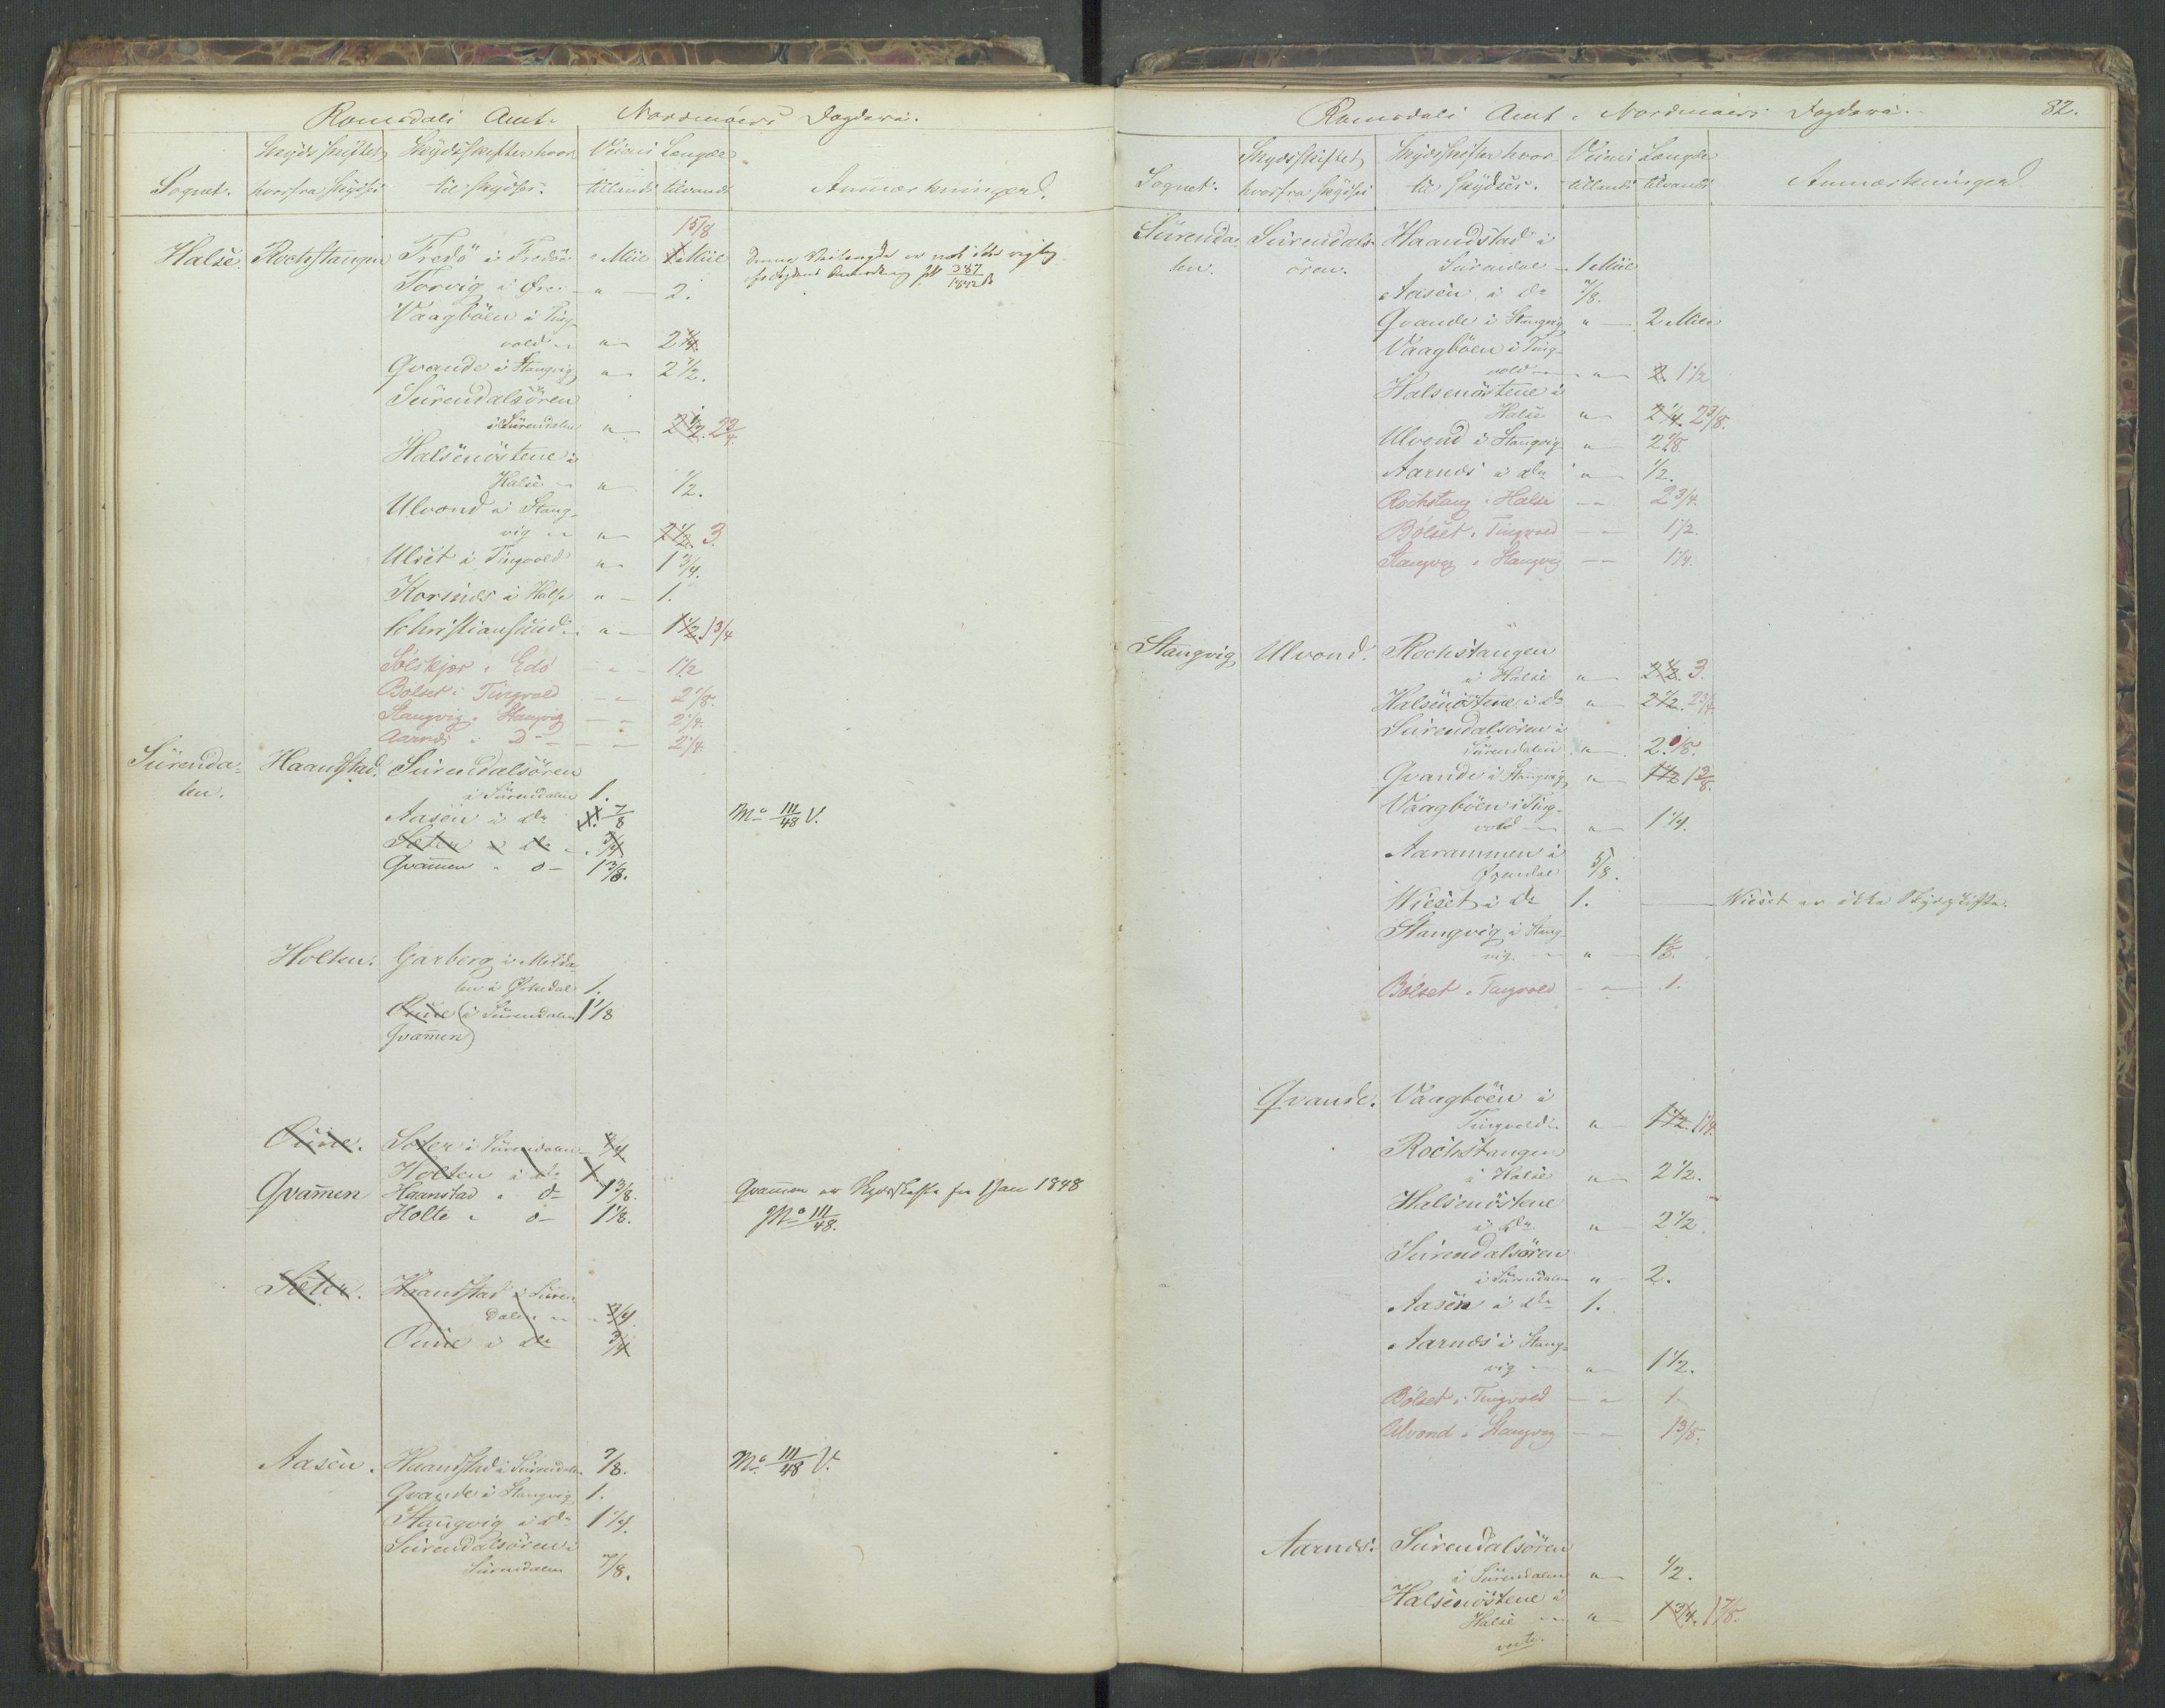 Romsdals Amt. Nordmørs Fogderi.
Sognet. Skydsskiftet, hvorfra skydses Skydsskifter hvor til skydses. Veiens Længde tillands tilvands Anmærkninger.
15/8
Halse. Rochstangen Fredö i Fredöe " Miil 1 Miil Denne Veilængde er nok ikke rigtig
Torvig i Øre " 2.
Vaagböen i Ting-
vold " 2 1/4.
Qvande i Stangvig " 2 1/2.
Surendalsören
i Surendalen " 2 1/2. 2 3/4.
Halsenöstene i
Halse " 1/2.
Ulvond i Stang-
vig " 2 1/2. 3.
Ulset i Tingvold " 1 3/4.
Korsnæs i Halse " 1.
Christiansund " 1 1/2. 1 3/4
Sølskjær i Edö " 1 1/2
Bølset i Tingvold " 2 1/8.
Stangvig i Stangvig " 2 1/4.
Aarnæs i Do " 2 1/4
Surenda-
len. Haandstad. Surendalsören
i Surendalen 1.
Aasen i do 1. 7/8 No 111/48 V.
Sæter i do 3/4
Qvammen " do 1 3/8.
Holten. Garberg i Melda-
len i Ørkedal 1.
Qune (i Surendalen 1 1/8
Qvammen)
Qune. Sæter i Surendalen 3/4
Holten i do 1
Qvammen Haanstad " do 1 3/8. Qvammen er Skydsskifte fra 1 Jan 1848
Holte " do 1 1/8. No 111/48.
Sæter. Haandstad i Suren-
dalen 3/4.
Qune i do 3/4
Aasen. Haandstad i Surendalen 7/8. No 111/48 V.
Qvande i Stangvig 1.
Stangvig i do 1 1/4.
Surendalsören i
Surendalen 7/8.
Romsdals Amt. Nordmørs Fogderi. 82.
Sognet. Skydsskiftet, hvorfra skydses Skydsskifter hvor til skydses. Veiens Længde tillands tilvands Anmærkninger
Surenda-
len. Surendals-
ören. Haandstad i
Surendal 1 Miil
Aasen i do 7/8.
Qvande i Stangvig " 2 Mile
Vaagböen i Ting-
vold " 2. 1 1/2
Halsenöstene i
Halse " 2 1/4. 2 3/8.
Ulvond i Stangvig " 2 1/8.
Aarnæs i do " 1/2.
Rochstang i Halse " 2 3/4.
Bølset i Tingvold " 1 1/2.
Stangvig i Stangvig " 1 1/4.
Stangvig Ulvond. Rochstangen
i Halse " 2 1/2. 3.
Halsenöstene i do " 2 1/2. 2 3/4.
Surendalsören i
Surendalen " 2 1/8.
Qvande i Stangvig " 1 1/2 1 3/8.
Vaagböen i Ting-
vold " 1 1/4.
Aarammen i
Øxendal 5/8.
Wieset i do 1. Wieset er ikke Skydsskifte.
Stangvig i Stang-
vig "
Bølset i Tingvold " 1.
Qvande. Vaagböen i
Tingvold " 1 1/2. 1 1/4.
Rochstangen
i Halse " 2 1/2.
Halsenöstene
i do " 2 1/2
Surendalsören
i Surendalen " 2.
Aasen i do 1.
Aarnæs i Stang-
vig " 1 1/2.
Bølset i Tingvold " 1.
Ulvond i Stangvig " 1 3/8.
Aarnæs. Surendalsören
i Surendalen " 1/2.
Halsenöstene i
Halse " 1 3/4. 1 7/8.
verte.